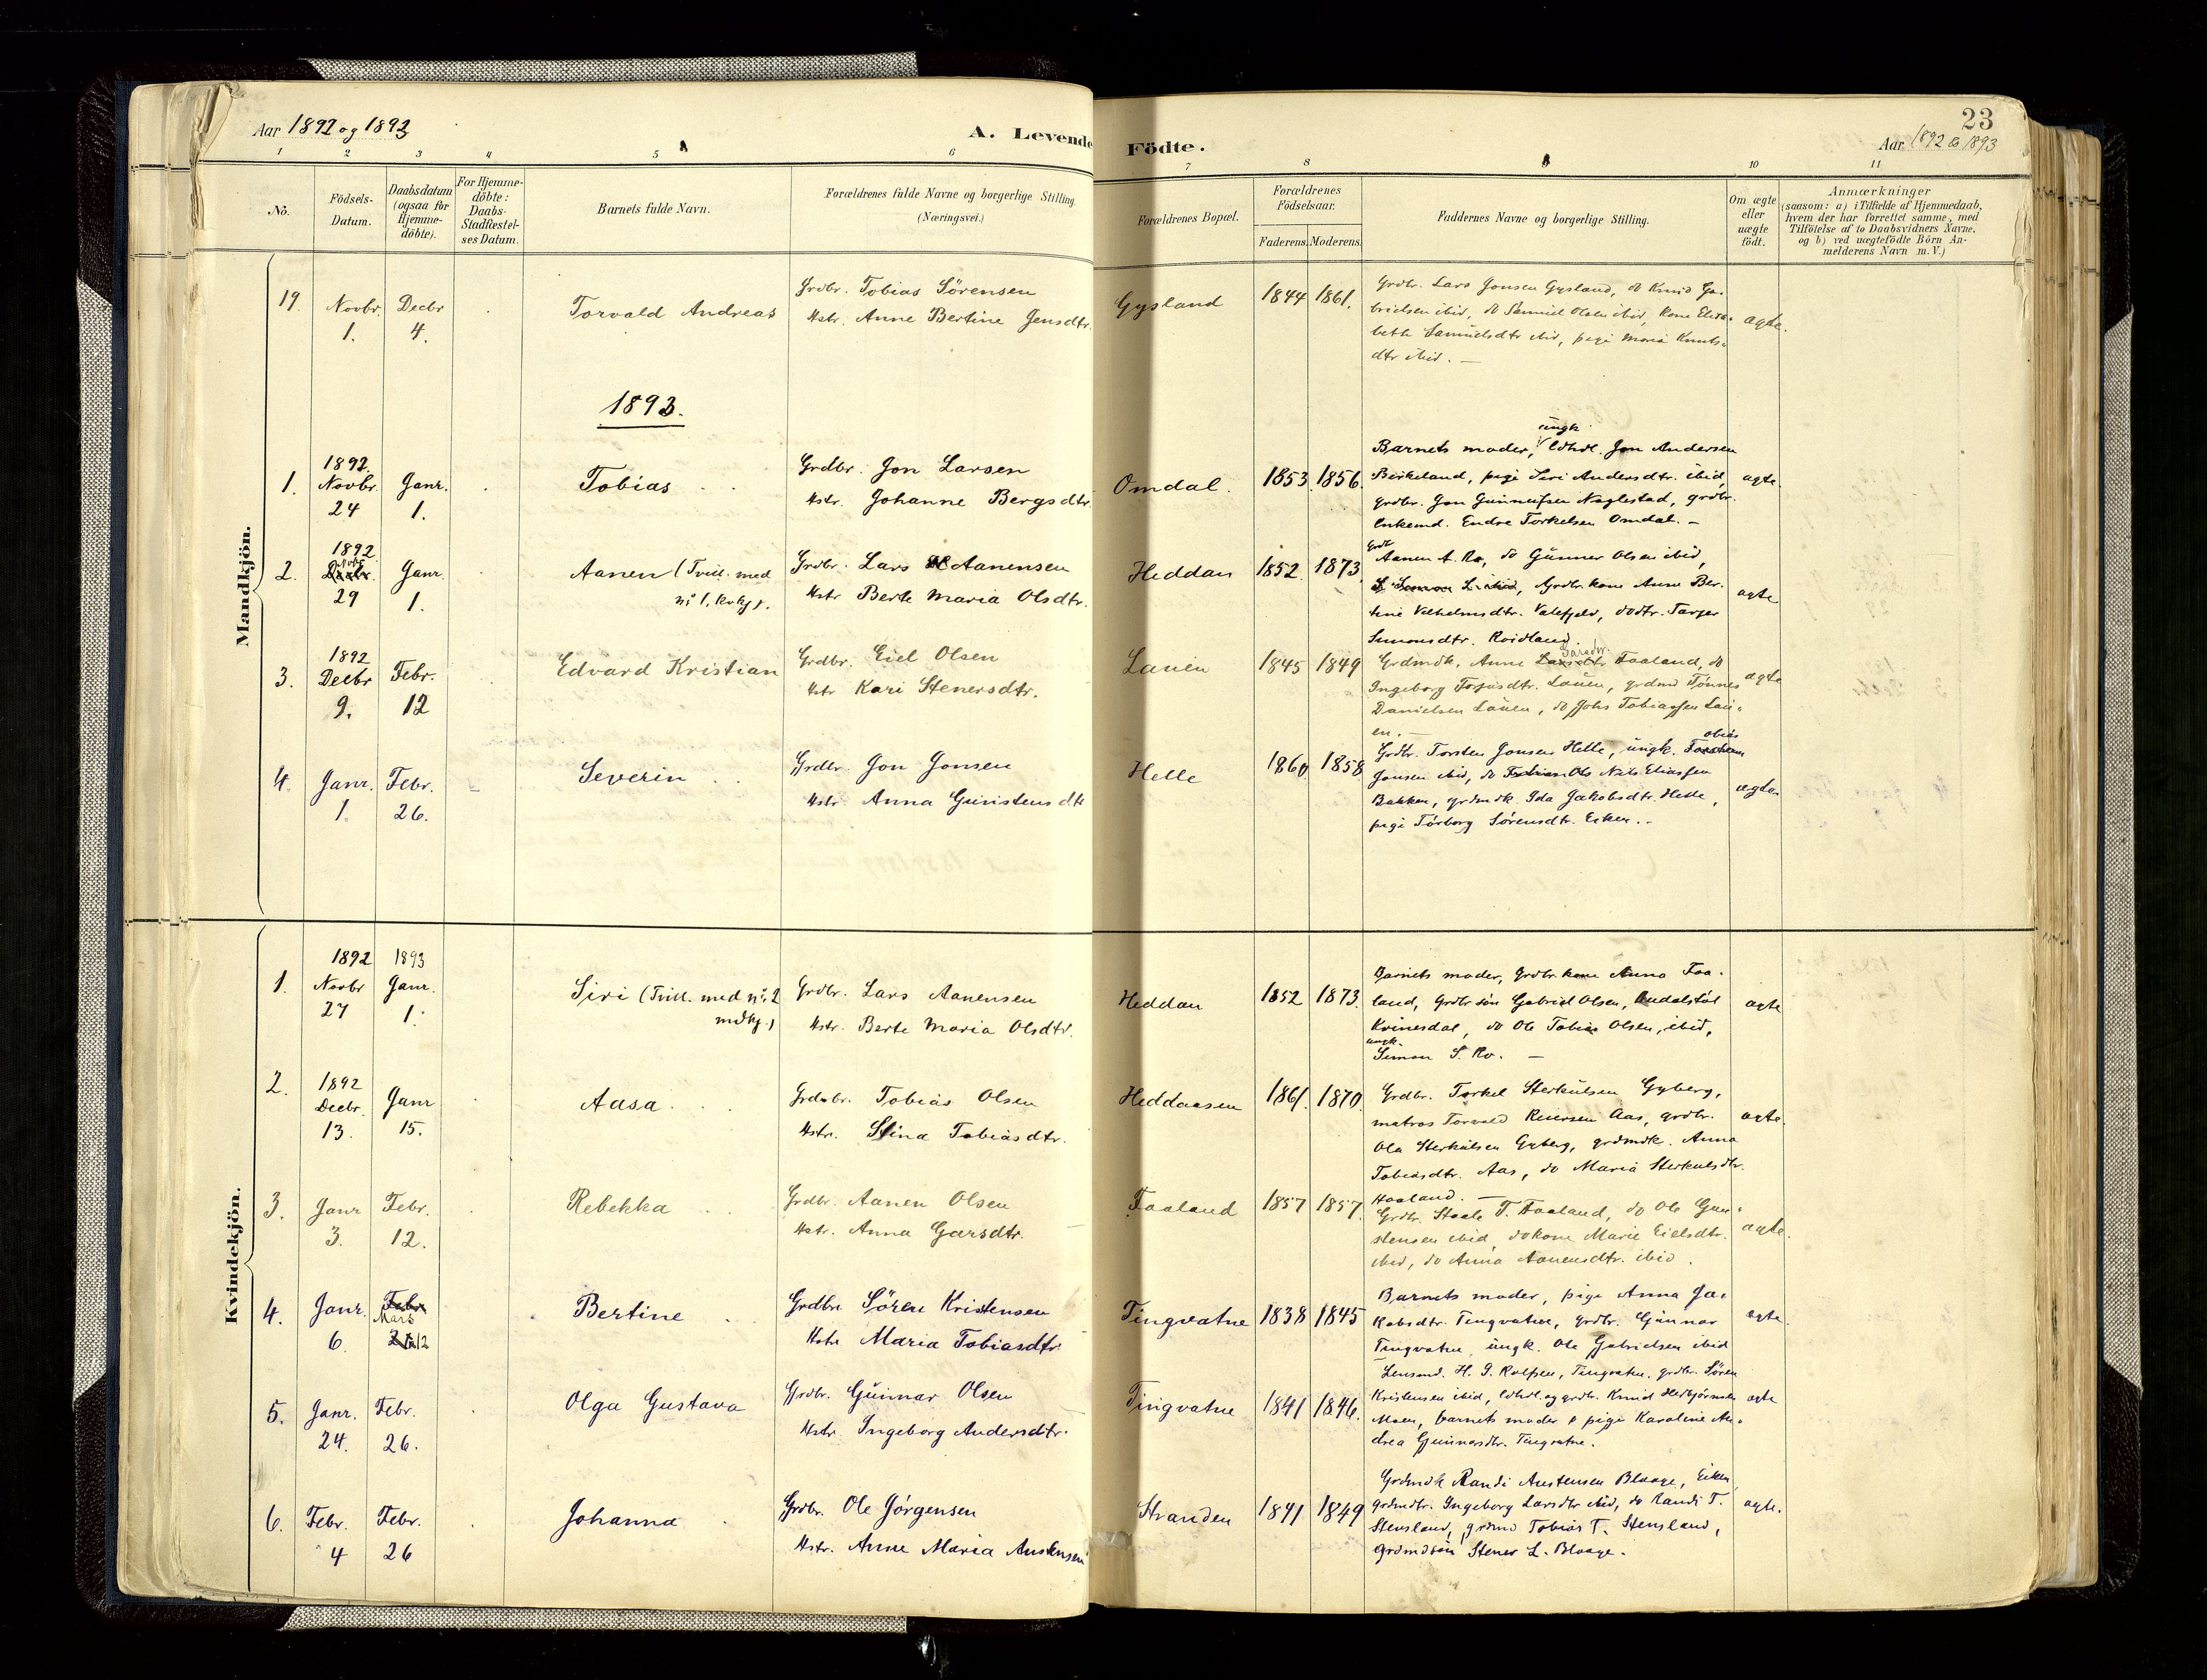 Aar 1892 og 1893
A. Levende Födte.
23
Aar 1892 & 1893
1 2 3 4 5 6 7 8 9 10 11
No.
Födsels-
Datum.
Daabsdatum
(ogsaa for
Hjemme-
döbte).
For Hjemme-
döbte:
Daabs-
Stadfæstel-
ses Datum.
Barnets fulde Navn.
Forældrenes fulde Navne og borgerlige Stilling.
(Næringsvei.)
Forældrenes Bopæl.
Forældrenes
Födselsaar.
Faderens. Moderens.
Faddernes Navne og borgerlige Stilling.
Om ægte
eller
uægte
födt.
Anmærkninger
(saasom: a) i Tilfælde af Hjemmedaab,
hvem der har forrettet samme, med
Tilföielse af to Daabsvidners Navne,
og b) ved uægtefödte Börn An-
melderens Navn m.V.)
Mandkjön.
19. Novbr. 1. Decbr 4. Torvald Andreas
Grdbr. Tobias Sörensen
Hstr. Anne Bertine Jensdtr.
Gysland 1844 1861.
Grdbr. Lars Jonsen Gysland, do Knud Ga-
brielsen ibid, do Samuel Olsen ibid, kone Elisa-
beth Samuelsdtr ibid, pige Maria Knuts-
dtr ibid. —
ægte.
1893.
1. 1892. Novbr. 24 Janr. 1. Tobias
Grdbr. Jon Larsen
Hstr. Johanne Bergsdtr.
Omdal. 1853. 1856.
ungk.
Barnets moder, ldhdl. Jon Andersen
Birkeland, pige Siri Andersdtr. ibid,
grdbr. Jon Gunnufsen Naglestad, grdbr.
Enkemd. Endre Torkelsen Omdal. —
ægte
2. 1892 Decbr. Novbr 29 Janr. 1. Aanen (Tvil. med
nº 1, kvkj).
Grdbr. Lars Aanensen
Hstr Berte Maria Olsdtr.
Heddan 1852. 1873.
Grdbr
Aanen A. Ro, do Gunner Olsen ibid,
Simon L. ibid, Grdbr. kone Anne Ber-
tine Vilhelmsdtr. Valefjeld, do dtr. Tarjer
Simonsdtr. Roidland.
ægte
3. 1892 Decbr 9. Febr. 12 Edvard Kristian
Grdbr. Eiel Olsen
Hstr Kari Stenersdtr.
Lauen 1845 1849
Garsdtr.
Grdmdk. Anne Larsdtr Faaland, do
Ingeborg Tarjusdtr. Lauen, grdmd Tönnes
Danielsen Lauen, do Johs Tobiassen Lau-
en. —
ægte
4. Janr. 1. Febr. 26. Severin
Grdbr. Jon Jonsen
Hstr. Anna Guristensdtr
Helle 1860 1858
obias
Grdbr. Torsten Jonsen Helle, ungk. Torsten
Jonsen ibid, do Nils Eliassen
Bakken, grdmdk. Ida Jakobsdtr. Helle,
pige Torborg Sörensdtr. Eiken. —
ægte.
Kvindekjön.
1. 1892 Novbr 27 1893 Janr. 1. Siri (Tvill. med nº 2
mdkj.)
Grdbr. Lars Aanensen
Hstr. Berte Maria Olsdtr.
Heddan 1852 1873.
Barnets moder, Grdbr. kone Anna Faa-
land, Grdbr sön Gabriel Olsen,
Kvinesdal, do Ole Tobias Olsen, ibid,
ungk.
Simon S. Ro. —
ægte
2. 1892 Decbr. 13. Janr 15. Aasa
Grdbr. Tobias Olsen
Hstr. Stina Tobiasdtr.
Heddaasen 1861. 1870.
Grdbr. Torkel Sterkulsen Gyberg,
matros Torvald Reiersen Aas, grdbr.
Ola Sterkulsen Gyberg, grdmdk. Anna
Tobiasdtr. Aas, do Maria Sterkulsdtr.
Haaland. —
ægte.
3. Janr 3. Febr. 12. Rebekka
Grdbr. Aanen Olsen
Hstr. Anna Garsdtr.
Faaland 1857 1857.
Grdbr. Staale T. Faaland, do Ole Gun-
stensen ibid, do kone Marie Eielsdtr.
ibid, do Anna Aanensdtr. ibid.
ægte.
4. Janr. 6. Febr Mars 12 Bertine
Grdbr Sören Kristensen
Hstr Maria Tobiasdtr.
Tingvatne 1838 1845
Barnets moder, pige Anna Ja-
kobsdtr. Tingvatne, Grdbr. Gunnar
Tingvatne, ungk. Ole Gabrielsen ibid
ægte
5. Janr. 24. Febr. 26. Olga Gustava
Grdbr. Gunnar Olsen
Hstr. Ingeborg Andersdtr.
Tingvatne 1841 1846.
Lensmd. H. G. Rolfsen, Tingvatne, grdbr. Sören
Kristensen ibid, ldhdl. og grdbr. Knud Herbjörnsen
Moen, barnets moder & pige Karoline An-
drea Gunnarsdtr. Tingvatne.
ægte
6. Febr. 4 Febr. 26 Johanna
Grdbr. Ole Jörgensen
Hstr. Anne Maria Austensen
Stranden 1841 1849
Grdmdk Randi Austensen Blaage, Eiken
grdmdtr. Ingeborg Larsdtr ibid, do Randi T.
Stensland, grdmd Tobias T. Stensland,
Grdmdsön Stener L. Blaage.
ægte.